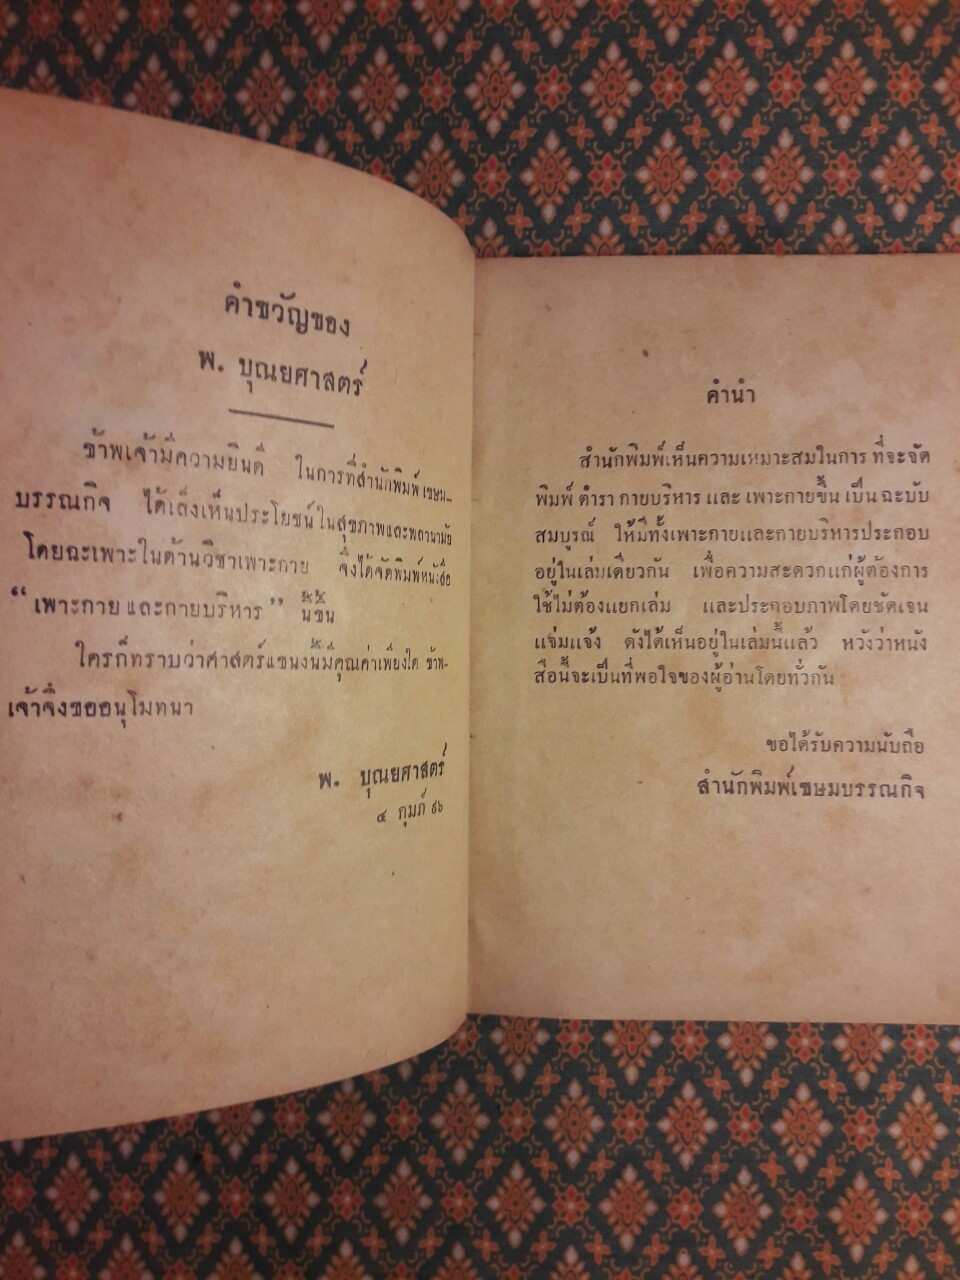 คำขวัญของ
พ. บุณยศาสตร์
ข้าพเจ้ามีความยินดี ในการที่สำนักพิมพ์เขษม-
บรรณกิจ ได้เล็งเห็นประโยชน์ในสุขภาพและพลานามัย
โดยฉะเพาะในด้านวิชาเพาะกาย จึงได้จัดพิมพ์หนังสือ
“ เพาะกาย และกายบริหาร ” นี้ขึ้น
ใครก็ทราบว่าศาสตร์แขนงนี้มีคุณค่าเพียงใด ข้าพ-
เจ้าจึงขออนุโมทนา
พ. บุณยศาสตร์
๔ กุมภ์ ๙๖
คำนำ
สำนักพิมพ์เห็นความเหมาะสมในการ ที่จะจัด
พิมพ์ ตำรา กายบริหาร และ เพาะกายขึ้น เป็น ฉะบับ
สมบูรณ์ ให้มีทั้งเพาะกายและกายบริหารประกอบ
อยู่ในเล่มเดียวกัน เพื่อความสะดวกแก่ผู้ต้องการ
ใช้ไม่ต้องแยกเล่ม และประกอบภาพโดยชัดเจน
แจ่มแจ้ง ดังได้เห็นอยู่ในเล่มนี้แล้ว หวังว่าหนัง
สือนี้จะเป็นที่พอใจของผู้อ่านโดยทั่วกัน
ขอได้รับความนับถือ
สำนักพิมพ์เขษมบรรณกิจ